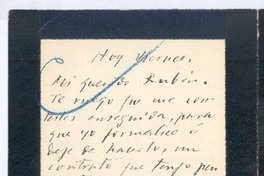 Hoy Viernes.
Mi querido Rubén.
Te ruego que me con-
testes enseguida, para
que yo formalice ó
deje de hacerlo, un
contrato que tengo pen